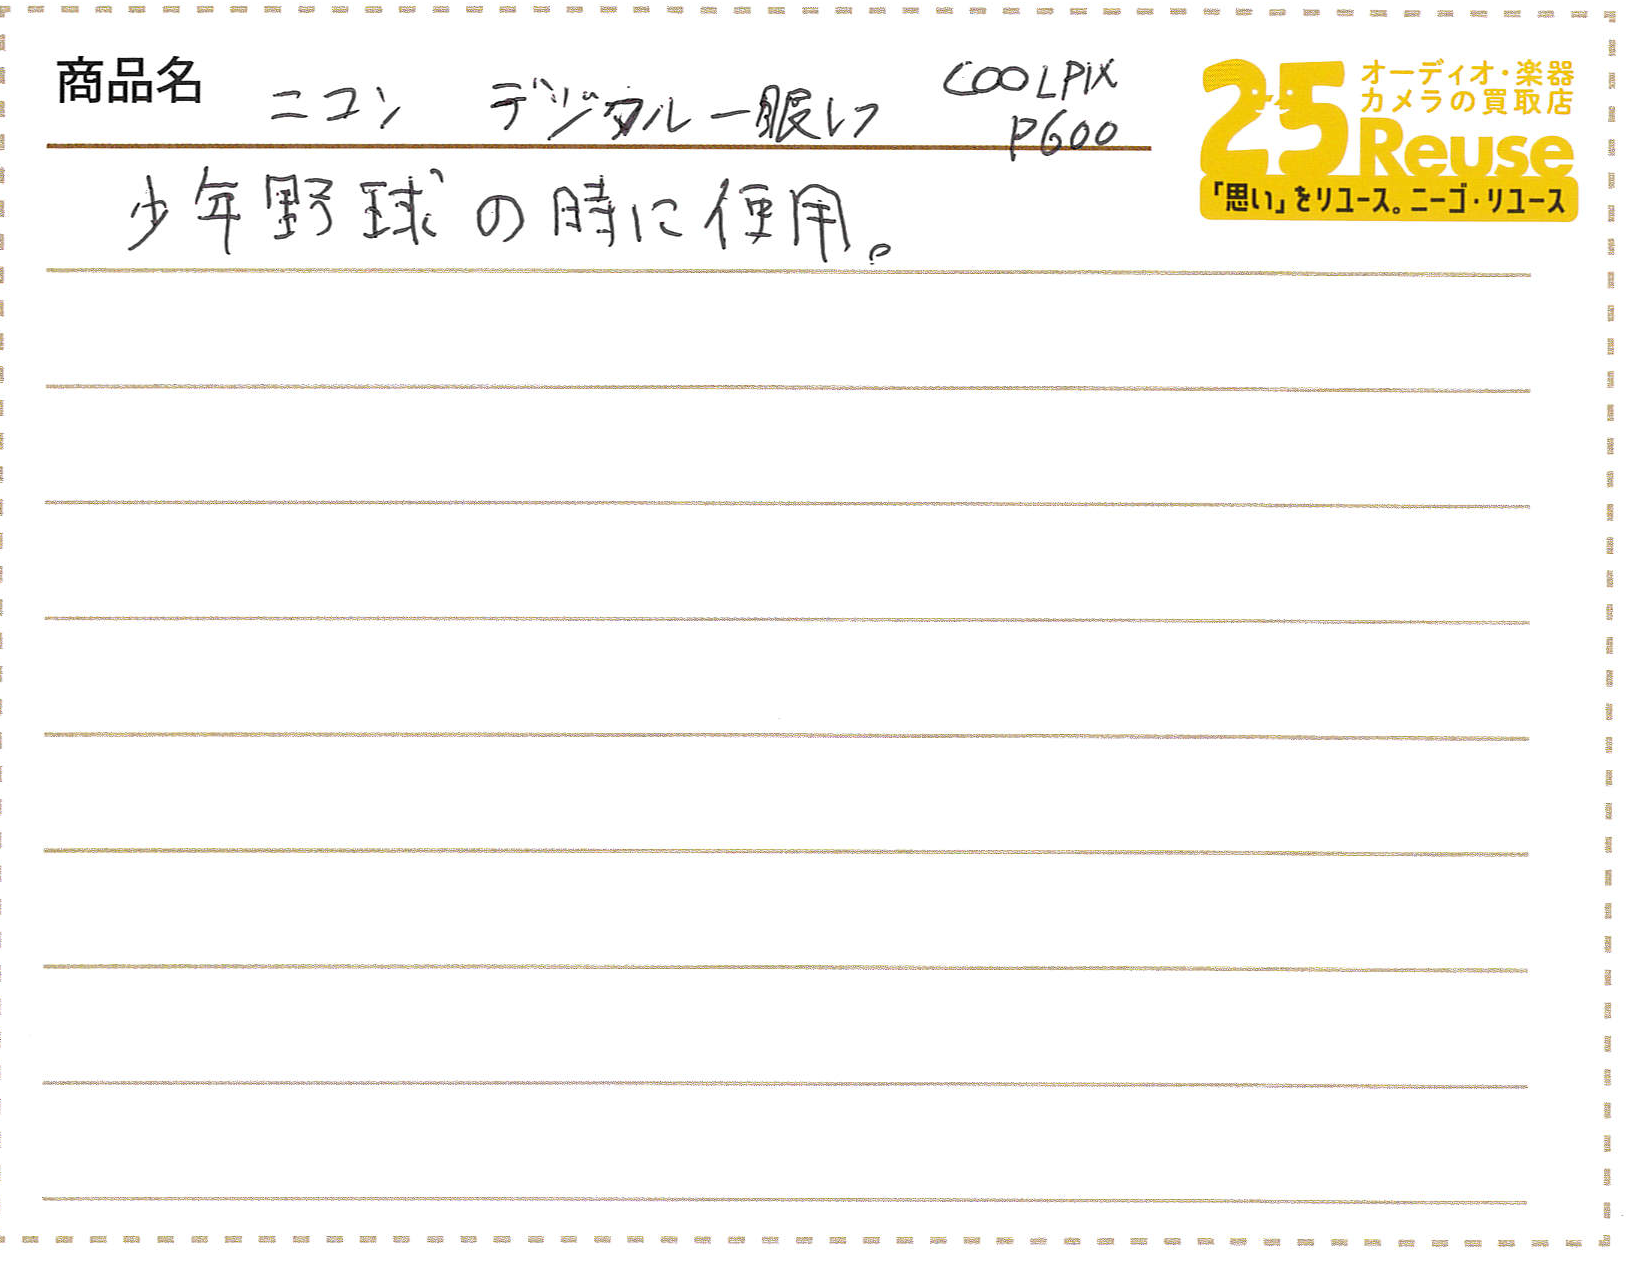 商品名 ニコン デジタル一眼レフ COOLPIX
P600
少年野球の時に使用。
25
オーディオ・楽器
カメラの買取店
Reuse
「思い」をリユース。ニーゴ・リユース